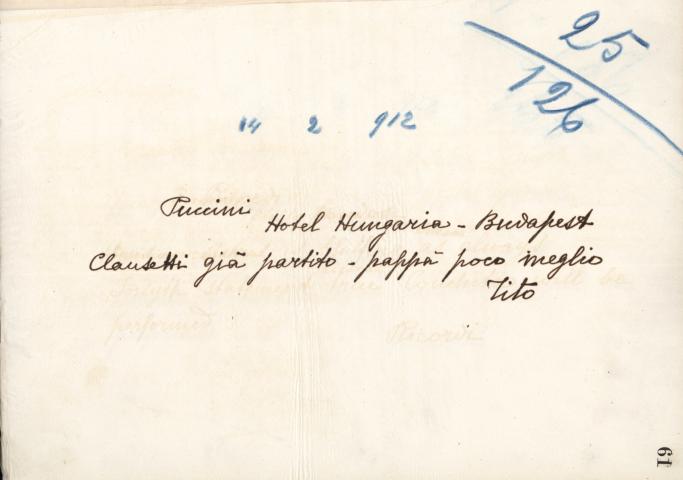 25
126
14 2 912
Puccini
Hotel Hungaria - Budapest
Clausetti già partito - pappà poco meglio
Tito
performed
Ricordi
61